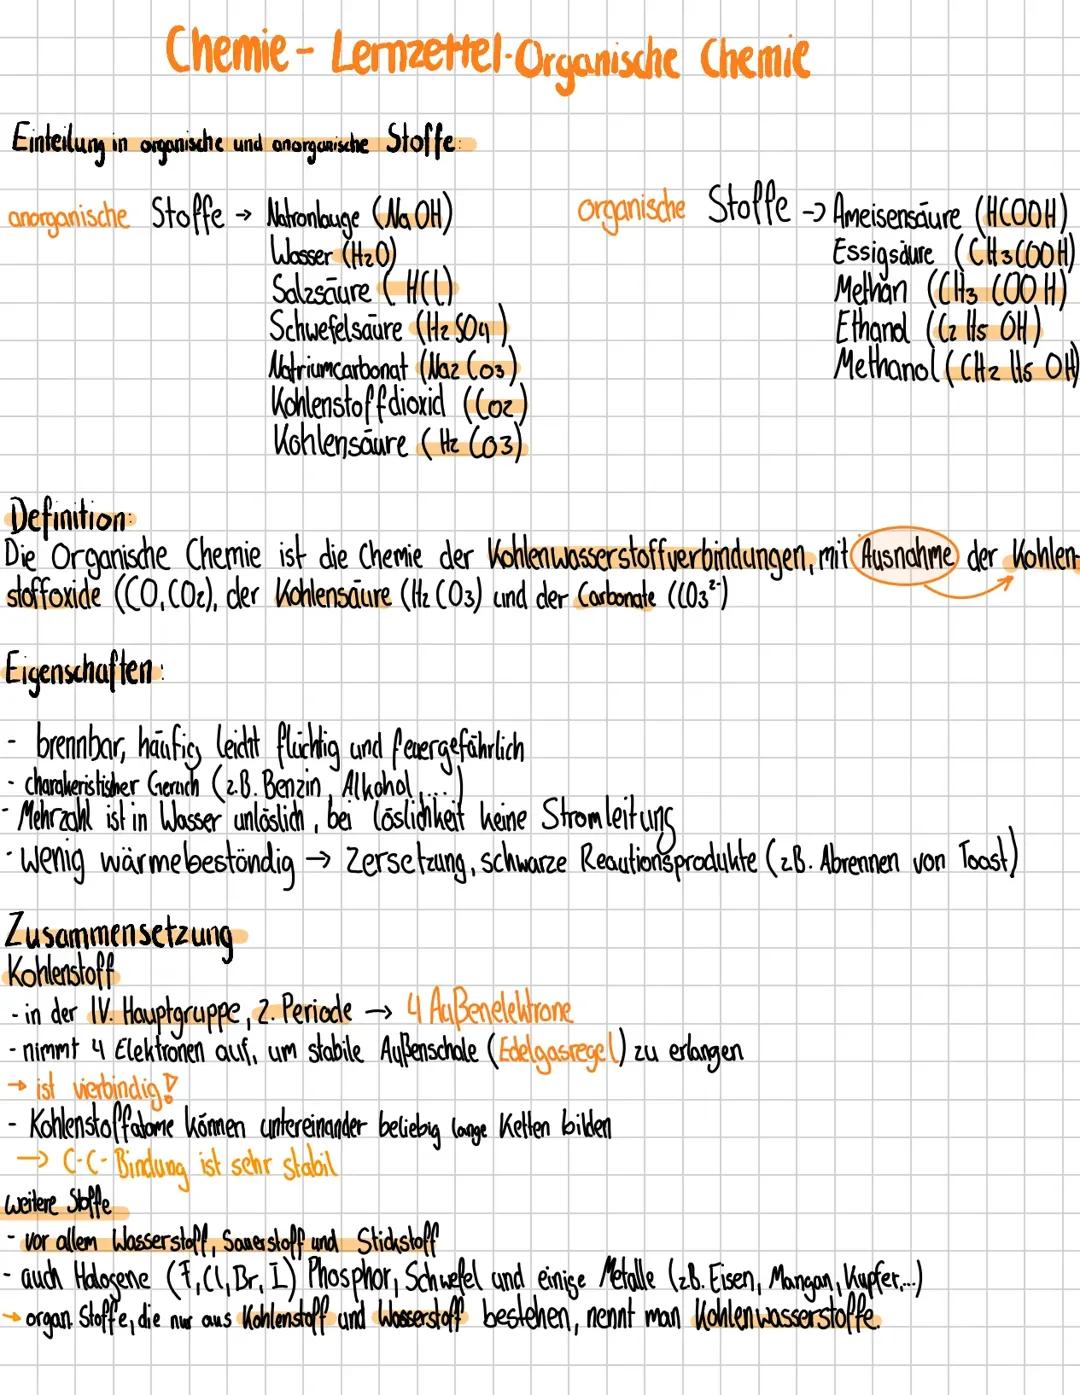 Chemie - Lernzettel-Organische Chemie
Einteilung in organische und anorganische Stoffe:
anorganische Stoffe → Natronlauge (NaOH)
Wasser (H2O)
Salzsäure (HCl)
Schwefelsäure (H2SO4)
Natriumcarbonat (Na2CO3)
Kohlenstoffdioxid (CO2)
Kohlensäure (H2CO3)
organische Stoffe → Ameisensäure (HCOOH)
Essigsäure (CH3COOH)
Methan (CH3COOH)
Ethanol (C2H5OH)
Methanol (CH2H5OH)
Definition:
Die Organische Chemie ist die Chemie der Kohlenwasserstoffverbindungen, mit Ausnahme der Kohlen-
stoffoxide (CO, CO2), der Kohlensäure (H2CO3) und der Carbonate (CO3²⁻)
Eigenschaften:
- brennbar, häufig leicht flüchtig und feuergefährlich
- charakeristisher Geruch (z.B. Benzin, Alkohol,...)
- Mehrzahl ist in Wasser unlöslich, bei Löslichkeit keine Stromleitung
- wenig wärmebeständig → Zersetzung, schwarze Reautionsprodukte (z.B. Abrennen von Toast)
Zusammensetzung
Kohlenstoff
- in der IV. Hauptgruppe, 2. Periode → 4 Außenelektrone
- nimmt 4 Elektronen auf, um stabile Außenschale (Edelgasregel) zu erlangen
→ ist vierbindig!
- Kohlenstoffatome können untereinander beliebig lange Ketten bilden
→ C-C-Bindung ist sehr stabil
weitere Stoffe
- vor allem Wasserstoff, Sauerstoff und Stickstoff
- auch Halogene (F, Cl, Br, I) Phosphor, Schwefel und einige Metalle (z.B. Eisen, Mangan, Kupfer,...)
→ organ. Stoffe, die nur aus Kohlenstoff und Wasserstoff bestehen, nennt man Kohlenwasserstoffe.